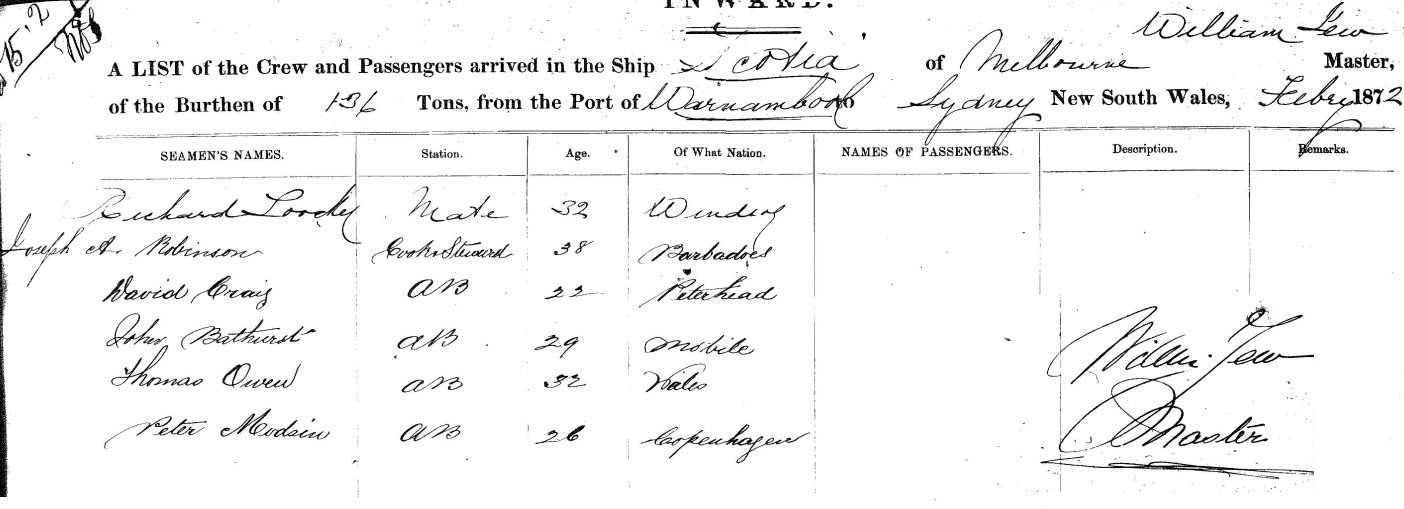 INWARD.
15.2
William Tew
A LIST of the Crew and Passengers arrived in the Ship Scotia of Melbourne Master,
of the Burthen of 136 Tons, from the Port of Warnambool to Sydney New South Wales, Febry 1872
SEAMEN'S NAMES. Station. Age. Of What Nation. NAMES OF PASSENGERS. Description. Remarks.
Richard Mate 32
Joseph A. Robinson Cook & Steward 38 Barbadoes
David Craig AB 22 Peterhead
John Bathurst AB 29 Mobile
Thomas Owen AB 32 Wales
Peter Modsin AB 26 Copenhagen
Willm. Tew
Master